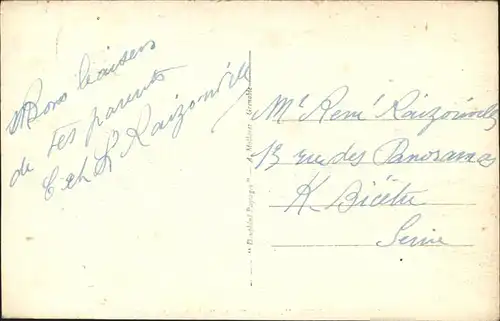 Bons baisers
de tes parents
E et L Raizonville
Mr René Raizonville
13 rue des Panoramas
K. Bicêtre
Seine